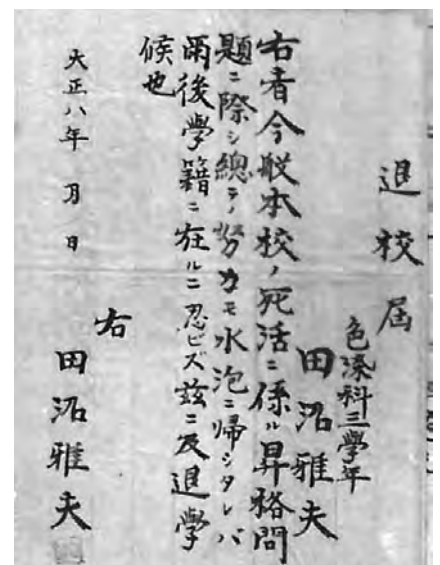 退校屆
色染科三學年
田沼雅夫
右者今般本校ノ死活ニ係ル昇格問
題ニ際シ總テノ努力モ水泡ニ帰シタレバ
爾後學籍ニ在ルニ忍ビズ玆ニ及退學
候也
大正八年 月 日
右
田沼雅夫